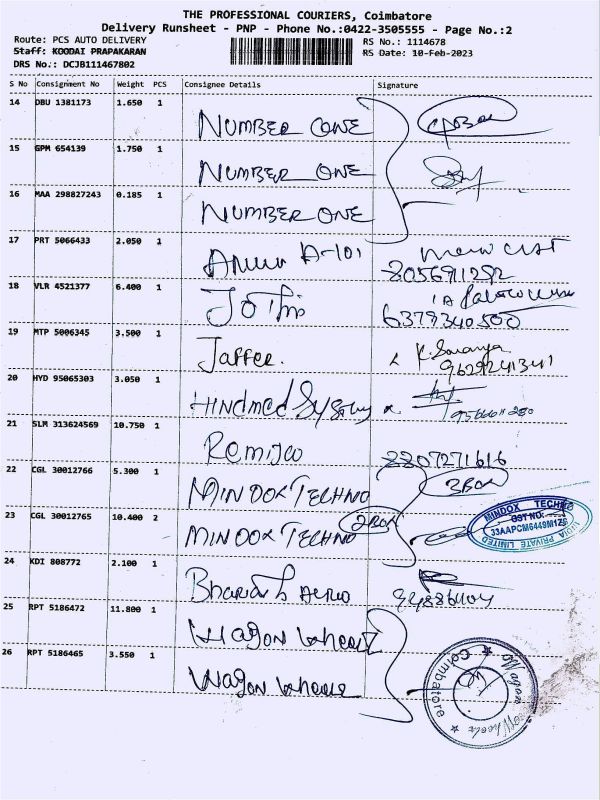 THE PROFESSIONAL COURIERS, Coimbatore
Delivery Runsheet - PNP - Phone No.:0422-3505555 - Page No.:2
Route: PCS AUTO DELIVERY
RS No.: 1114678
Staff: KOODAI PRAPAKARAN
RS Date: 10-Feb-2023
DRS No.: DCJB111467802
S No Consignment No Weight PCS Consignee Details Signature
14 DBU 1381173 1.650 1
NUMBER ONE
15 GPM 654139 1.750 1
NUMBER ONE
16 MAA 298827243 0.185 1
NUMBER ONE
17 PRT 5066433 2.050 1
A-101
8056911252
18 VLR 4521377 6.400 1
Jothi
6379340500
19 MTP 5006345 3.500 1
Jaffer. K. Saranya
9629241341
20 HYD 95065303 3.050 1
Hindmed Systems
21 SLM 313624569 10.750 1
2207271616
22 CGL 30012766 5.300 1
MINDOX TECHNO 3BOX
23 CGL 30012765 10.400 2
2BOX
MINDOX TECHNO
MINDOX TECHNO
GST NO:
33AAPCM6449M1ZE
INDIA PRIVATE LIMITED
24 KDI 808772 2.100 1
Bharath
25 RPT 5186472 11.800 1
Wagon Wheel
26 RPT 5186465 3.550 1
Wagon Wheels
Wagon Wheels
Coimbatore